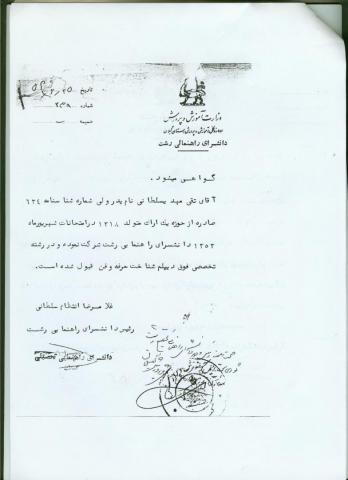 تاریخ
شماره
ضمیمه
وزارت آموزش و پرورش
اداره کل آموزش و پرورش استان گیلان
دانشسرای راهنمائی رشت
گواهی میشود.
آقای تقی مهد یسلطانی نام پدر ولی شماره شناسنامه ۶۳۴
صادره از حوزه یک اراک متولد ۱۳۱۸ در امتحانات شهریورماه
۱۳۵۳ دانشسرای راهنمایی رشت شرکت نموده و در رشته
تخصصی فوق دیپلم شناخت حرفه و فن قبول شده است.
غلامرضا انتظام سلطانی
رئیس دانشسرای راهنمایی رشت
دانشسرای راهنمائی تحصیلی